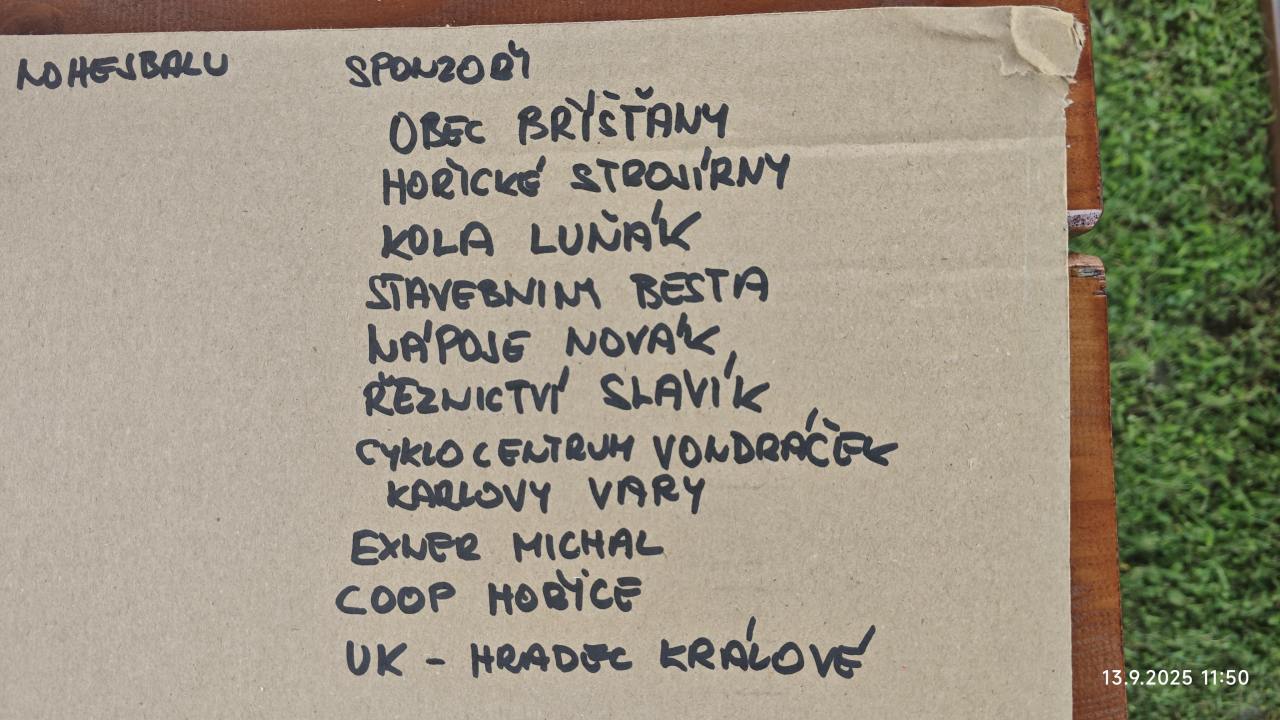 NOHEJBALU SPONZOŘI
OBEC BŘÍŠŤANY
HOŘICKÉ STROJÍRNY
KOLA LUŇÁK
STAVEBNINY BESTA
NÁPOJE NOVÁK
ŘEZNICTVÍ SLAVÍK
CYKLOCENTRUM VONDRÁČEK
KARLOVY VARY
EXNER MICHAL
COOP HOŘICE
UK - HRADEC KRÁLOVÉ
13.9.2025 11:50